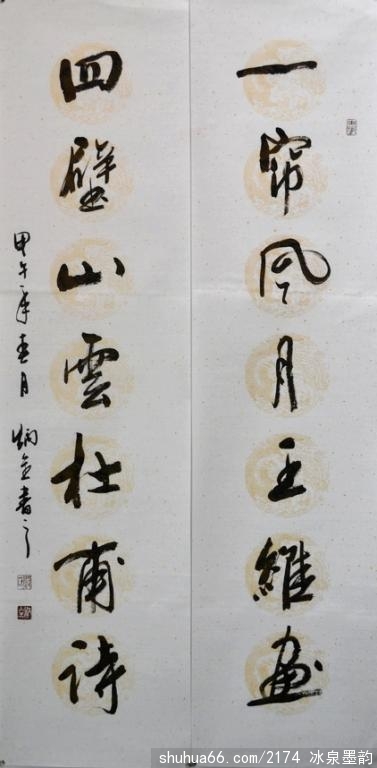 一帘风月王維画
四壁山雲杜甫诗
甲午年春月 炳金書之
shuhua66.com/2174 冰泉墨韵